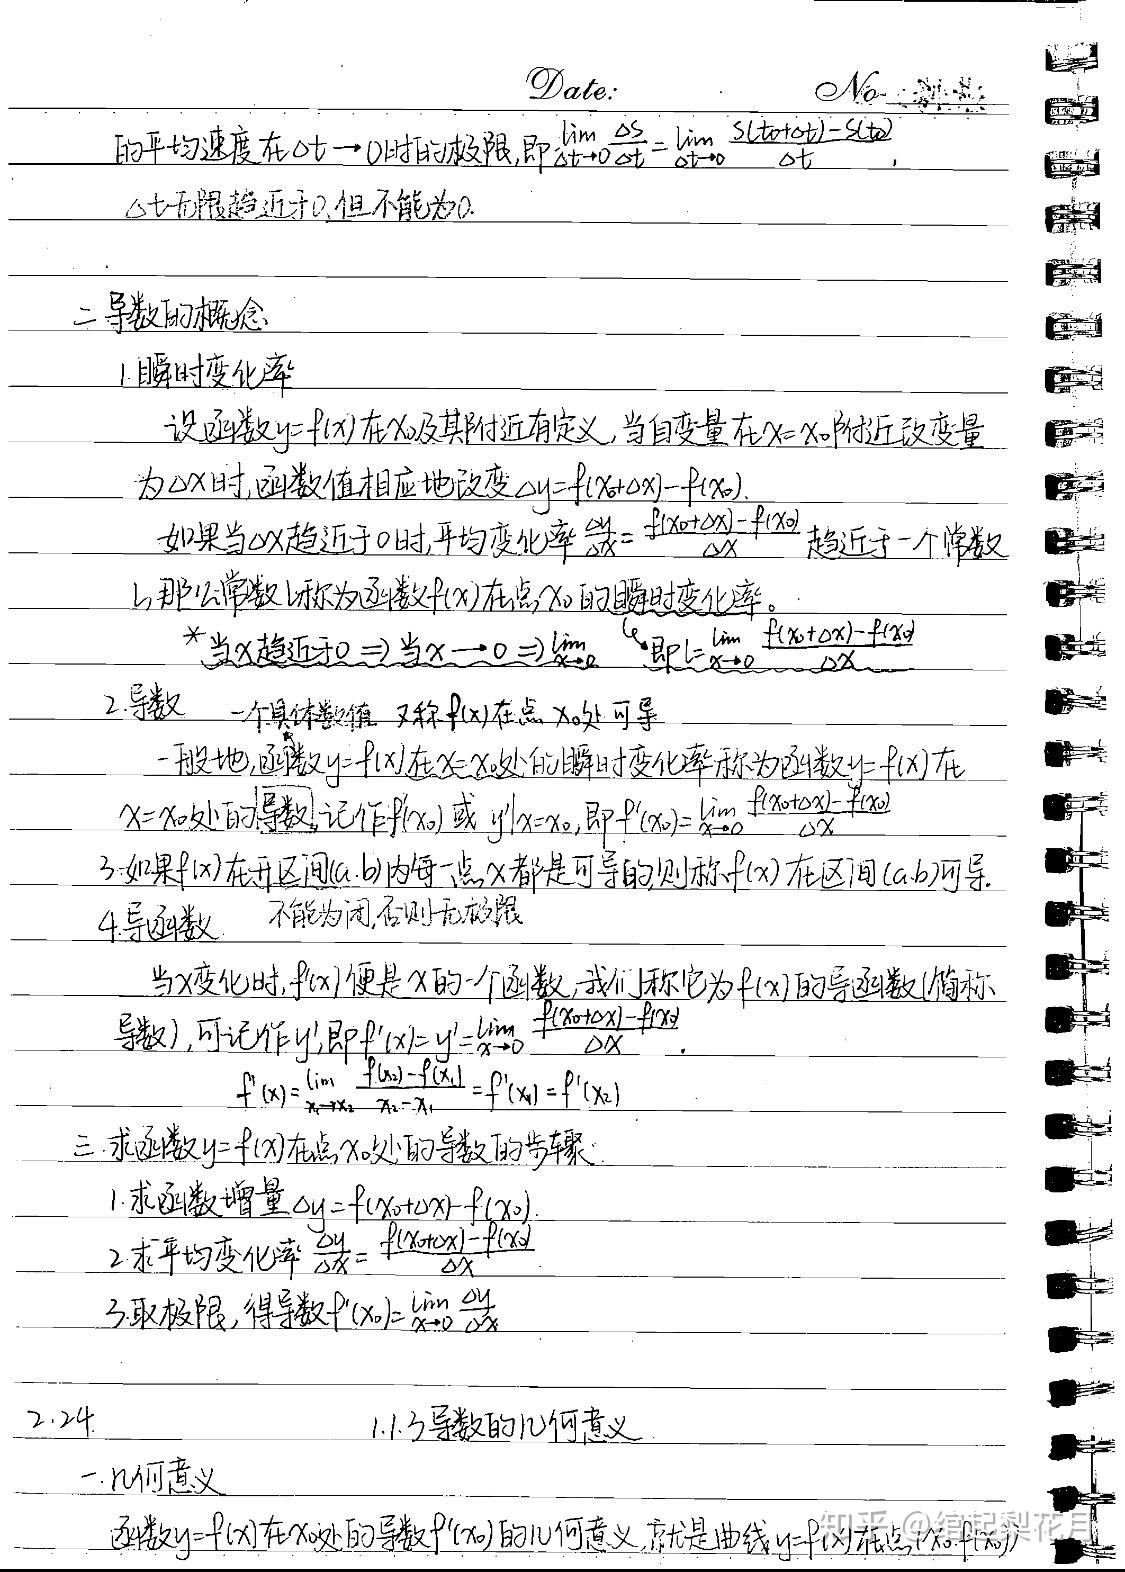 Date: No.
的平均速度在Δt→0时的极限,即lim Δt→0 ΔS/Δt = lim Δt→0 (S(t₀+Δt)-S(t₀))/Δt.
Δt无限趋近于0,但不能为0.
二.导数的概念
1.瞬时变化率
设函数y=f(x)在x₀及其附近有定义,当自变量在x=x₀附近改变量
为Δx时,函数值相应地改变Δy=f(x₀+Δx)-f(x₀).
如果当Δx趋近于0时,平均变化率Δy/Δx=(f(x₀+Δx)-f(x₀))/Δx 趋近于一个常数
l,那么常数l称为函数f(x)在点x₀的瞬时变化率。
*当x趋近于0⇒当x→0⇒lim x→0 即l=lim x→0 (f(x₀+Δx)-f(x₀))/Δx
2.导数 一个具体数值 又称f(x)在点x₀处可导
一般地,函数y=f(x)在x=x₀处的瞬时变化率称为函数y=f(x)在
x=x₀处的导数,记作f'(x₀)或y'|x=x₀,即f'(x₀)=lim x→0 (f(x₀+Δx)-f(x₀))/Δx
3.如果f(x)在开区间(a.b)内每一点x都是可导的,则称f(x)在区间(a.b)可导.
4.导函数 不能为闭,否则无极限
当x变化时,f'(x)便是x的一个函数,我们称它为f(x)的导函数(简称
导数),可记作y',即f'(x)=y'=lim x→0 (f(x₀+Δx)-f(x₀))/Δx.
f'(x)=lim x₁→x₂ (f(x₂)-f(x₁))/(x₂-x₁)=f'(x₁)=f'(x₂)
三.求函数y=f(x)在点x₀处的导数的步骤
1.求函数增量Δy=f(x₀+Δx)-f(x₀).
2.求平均变化率 Δy/Δx=(f(x₀+Δx)-f(x₀))/Δx
3.取极限,得导数f'(x₀)=lim x→0 Δy/Δx
2.24 1.1.3导数的几何意义
一.几何意义
函数y=f(x)在x₀处的导数f'(x₀)的几何意义,就是曲线y=f(x)在点(x₀.f(x₀))
知乎 @绾起梨花月